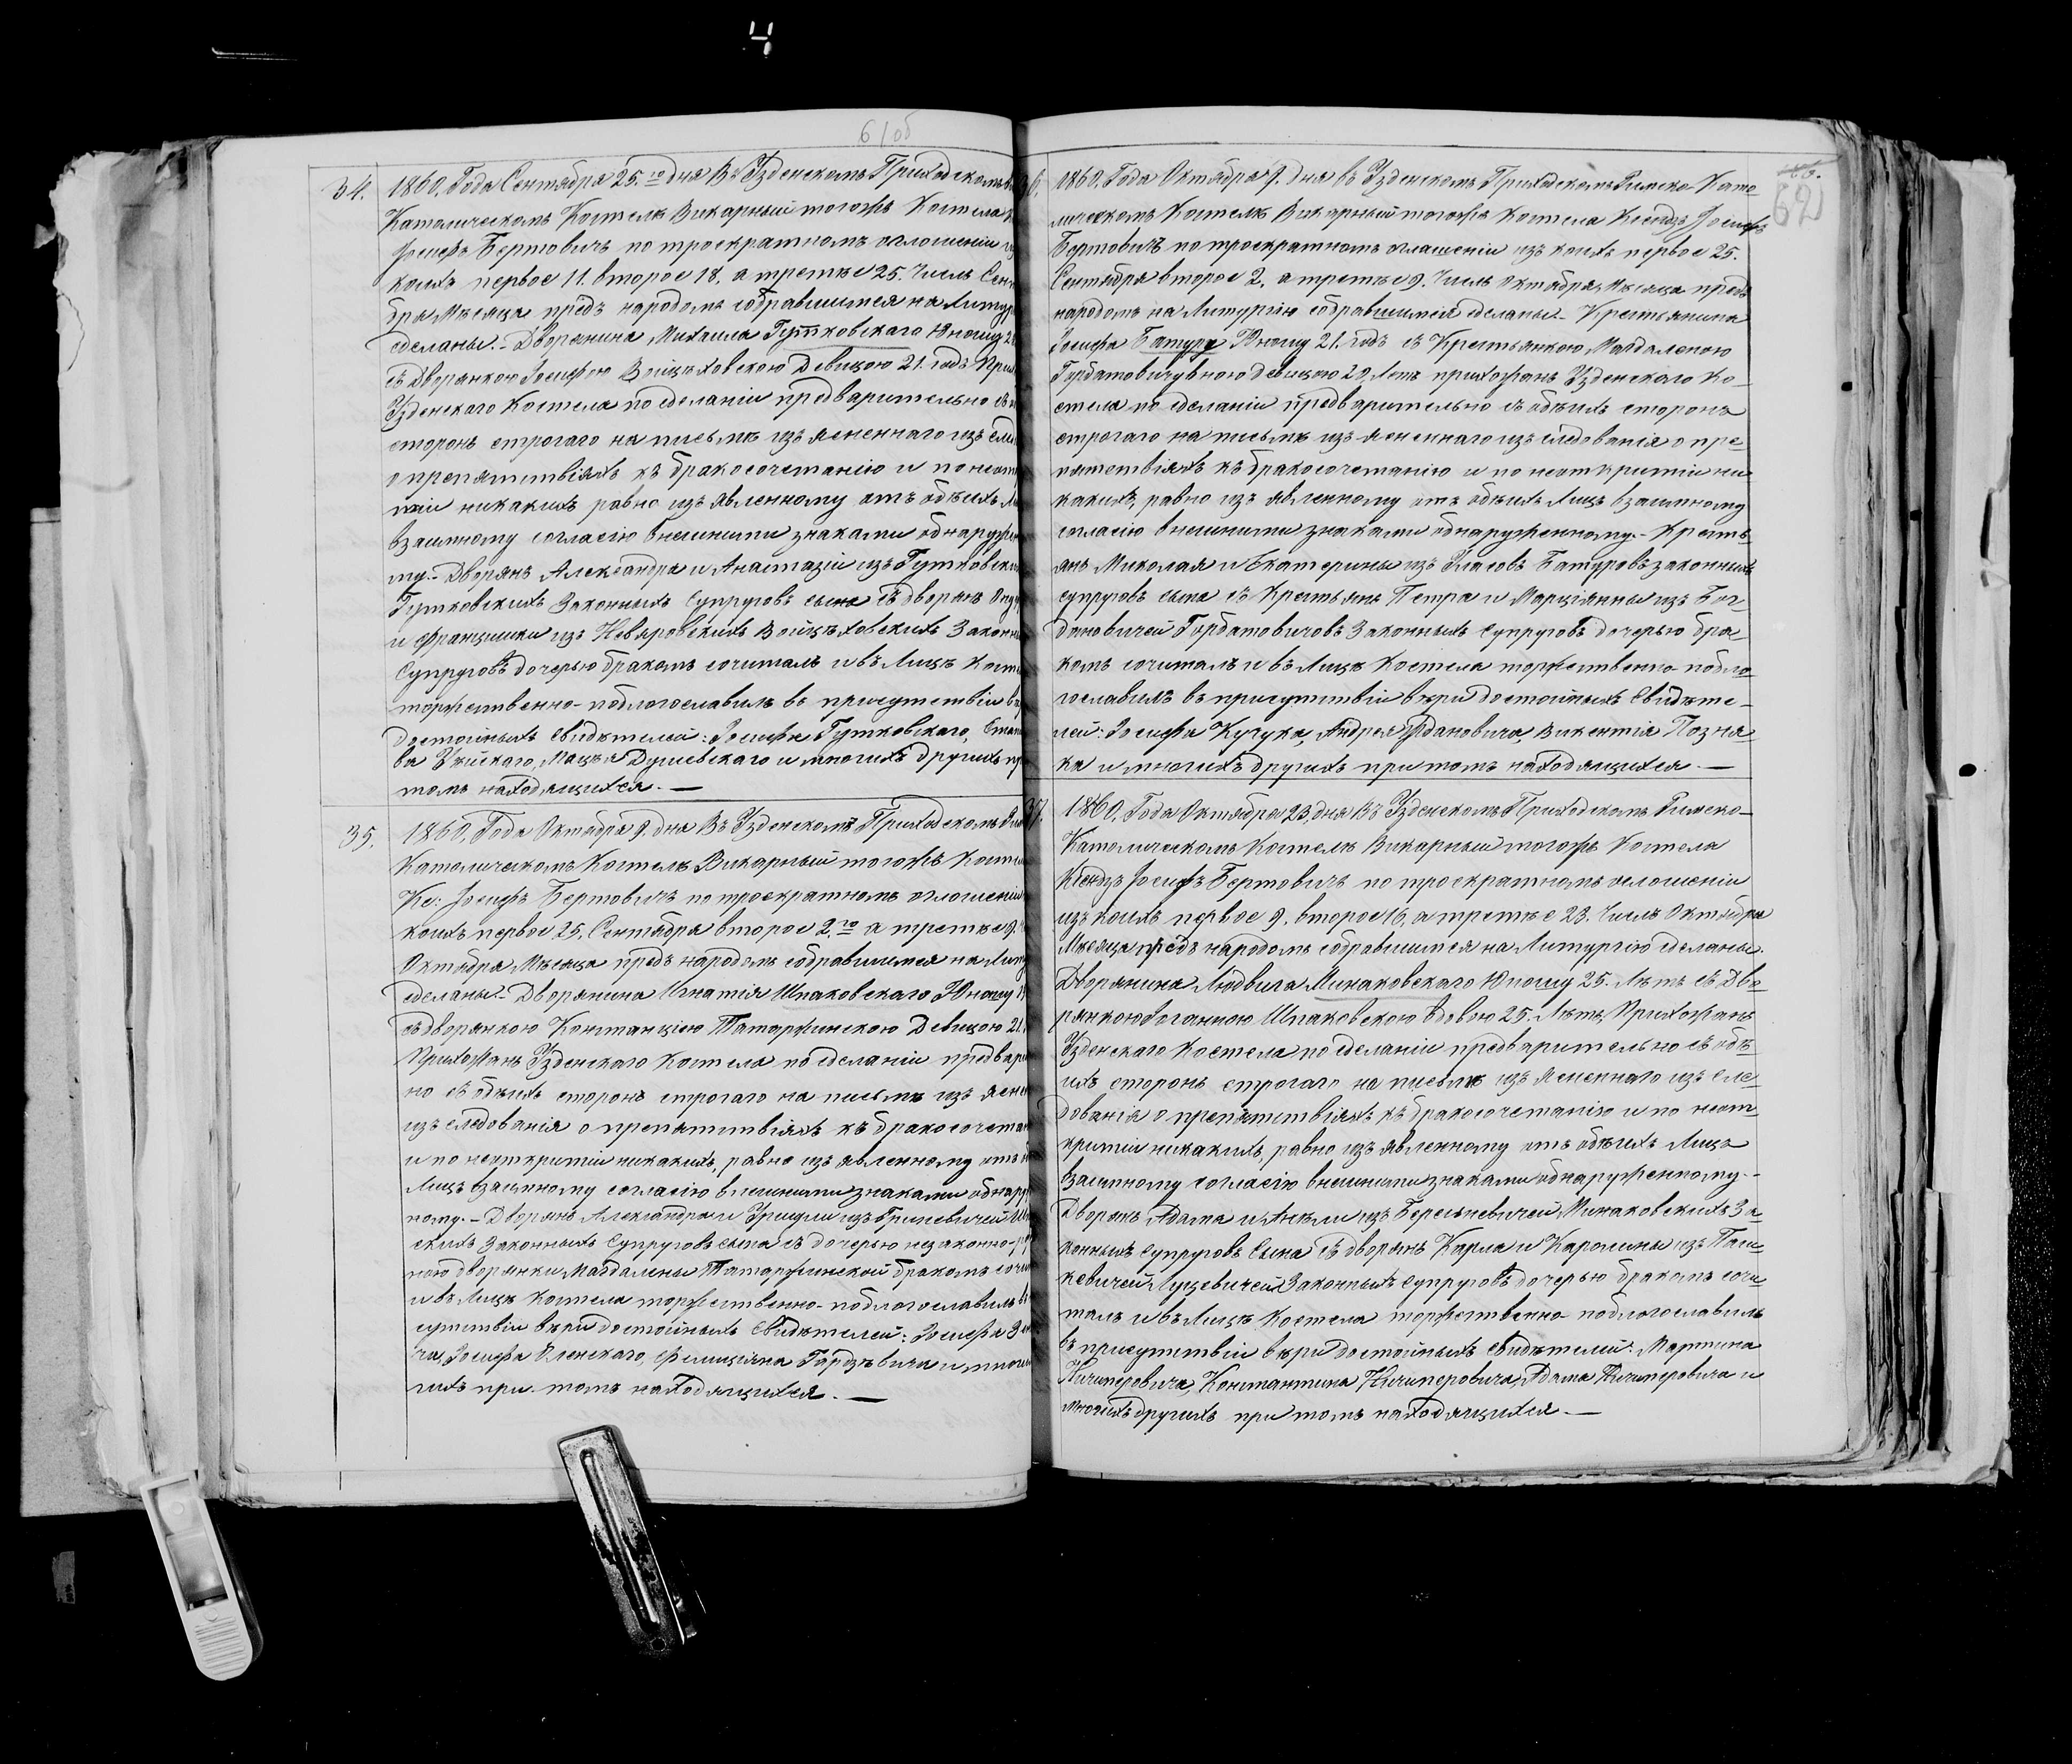 4
61об
34. 1860. Года Сентября 25.го дня Въ Узденскомъ Приходскомъ
Католическомъ Костелѣ Викарный тогожъ Костела
Іосифъ Бертовичъ по троекратномъ оглошеніи
коихъ первое 11. второе 18. а третье 25. Числъ Сен
бря Мѣсяца предъ народомъ собравшимся на Литур
сделаны. - Дворянина Михаила Гутковскаго Юношу
съ Дворянкою Іосифою Войцѣховскою Девицою 21. годъ При
Узденскаго Костела по сделаніи предварительно съ
сторонъ строгаго на письмѣ изъясненнаго изъ сле
о препятствіяхъ къ бракосочетанію и по неот
тіи никакихъ равно изъ явленному отъ обѣихъ
взаимному согласію внешними знаками обнаруже
му. - Дворянъ Александра и Анастазіи изъ Гутковски
Гутковскихъ Законныхъ Супруговъ сына съ дворянъ
и Францишки изъ Невяровскихъ Войцѣховскихъ Законн
Супруговъ дочерью бракомъ сочиталъ и въ Лицѣ Кост
торжественно - поблогославилъ во присутствіи
достойныхъ Свидѣтелей: Іосифа Гутковскаго,
ва Уѣйскаго, Мацѣя Душевскаго и многихъ другихъ
томъ находящихся. —
35. 1860. Года Октября 9. дня Въ Узденскомъ Приходскомъ
Католическомъ Костелѣ Викарный тогожъ Косте
Кс: Іосифъ Бертовичъ по троекратномъ оглошеніи
коихъ первое 25. Сентября второе 2.го а третье 9.
Октября Мѣсяца предъ народомъ собравшимся на Лит
сделаны - Дворянина Игнатія Шпаковскаго Юношу
съ дворянкою Констанціею Татаржинскою Девицою 21.
Прихожанъ Узденскаго Костела по сделаніи предвари
но съ обѣихъ сторонъ строгаго на письмѣ изъ ясне
изъ следованія о препятствіяхъ къ бракосочета
и по неоткритіи никакихъ, равно изъ явленному отъ
Лицъ взаимному согласію внешними знаками обнару
ному. - Дворянъ Александра и Уршули изъ Гриневичей
скихъ Законныхъ Супруговъ сына съ дочерью незаконно-
ною дворянки Магдалены Татаржинской бракомъ сочи
и въ Лицѣ Костела торжественно - поблогославилъ
сутствіи вѣри достойныхъ Свидѣтелей: Іосифа
ча, Іосифа Оленскаго, Фелиціяна Гардзѣвича и мног
гихъ при томъ находящихся. —
62
1860. Года Октября 9. дня въ Узденскомъ Приходскомъ Римско-Като-
лическомъ Костелѣ Викарный тогожъ Костела Ксендзъ Іосифъ
Бертовичъ по троекратномъ оглашеніи изъ коихъ первое 25.
Сентября второе 2. а третье 9. Числъ Октября Мѣсяца предъ
народомъ на Литургію собравшимся сделаны - Крестьянина
Іосифа Батуру Юношу 21. годъ съ Крестьянкою Магдаленою
Гордатовичувною девицою 20. Летъ прихожанъ Узденскаго Ко-
стела по сделаніи предварительно съ обѣихъ сторонъ
строгаго на письмѣ изъ ясненнаго изъ следованія о пре-
пятствіяхъ къ бракосочетанію и по неоткритіи ни-
какихъ, равно изъ явленному отъ обѣихъ Лицъ взаимному
согласію внешними знаками обнаруженному. - Кресть-
янъ Миколая и Екатерины изъ Уласовъ Батуровъ законныхъ
супруговъ сына съ Крестьянъ Петра и Марціянны изъ Бог-
дановичей Гордатовичовъ Законныхъ Супруговъ дочерью бра-
комъ сочиталъ и въ Лицѣ Костела торжественно - побло-
гославилъ въ присутствіи вѣри достойныхъ Свидѣте-
лей: Іосифа Кучука, Андрея Ждановича, Викентія Позня-
ка и многихъ другихъ при томъ находящихся. —
37. 1860. Года Октября 23. дня Въ Узденскомъ Приходскомъ Римско-
Католическомъ Костелѣ Викарный тогожъ Костела
Ксендзъ Іосифъ Бертовичъ по троекратномъ оглошеніи
изъ коихъ первое 9. второе 16. а третье 23. Числъ Октября
Мѣсяца предъ народомъ собравшимся на Литургію сделаны.
Дворянина Людвига Минаковскаго Юношу 25. Лѣтъ съ Дво-
рянкою Іоганною Шпаковскою Вдовою 25. Лѣтъ, Прихожанъ
Узденскаго Костела по сделаніи предварительно съ обѣ-
ихъ сторонъ строгаго на письмѣ изъ ясненнаго изъ сле-
дованія о препятствіяхъ къ бракосочетанію и по неот-
критіи никакихъ, равно изъ явленному отъ обѣихъ Лицъ
взаимному согласію внешними знаками обнаруженному. -
Дворянъ Адама и Анѣли изъ Минаковскихъ За-
конныхъ Супруговъ Сына съ дворянъ Карла и Каролины изъ Паш-
кевичей Луцевичей Законныхъ Супруговъ дочерью бракомъ сочи-
талъ и въ Лицѣ Костела торжественно - поблогославилъ
въ присутствіи вѣри достойныхъ Свидѣтелей: Мартина
Ничипоровича, Константина Ничипоровича, Адама Ничипоровича и
многихъ другихъ при томъ находящихся. —